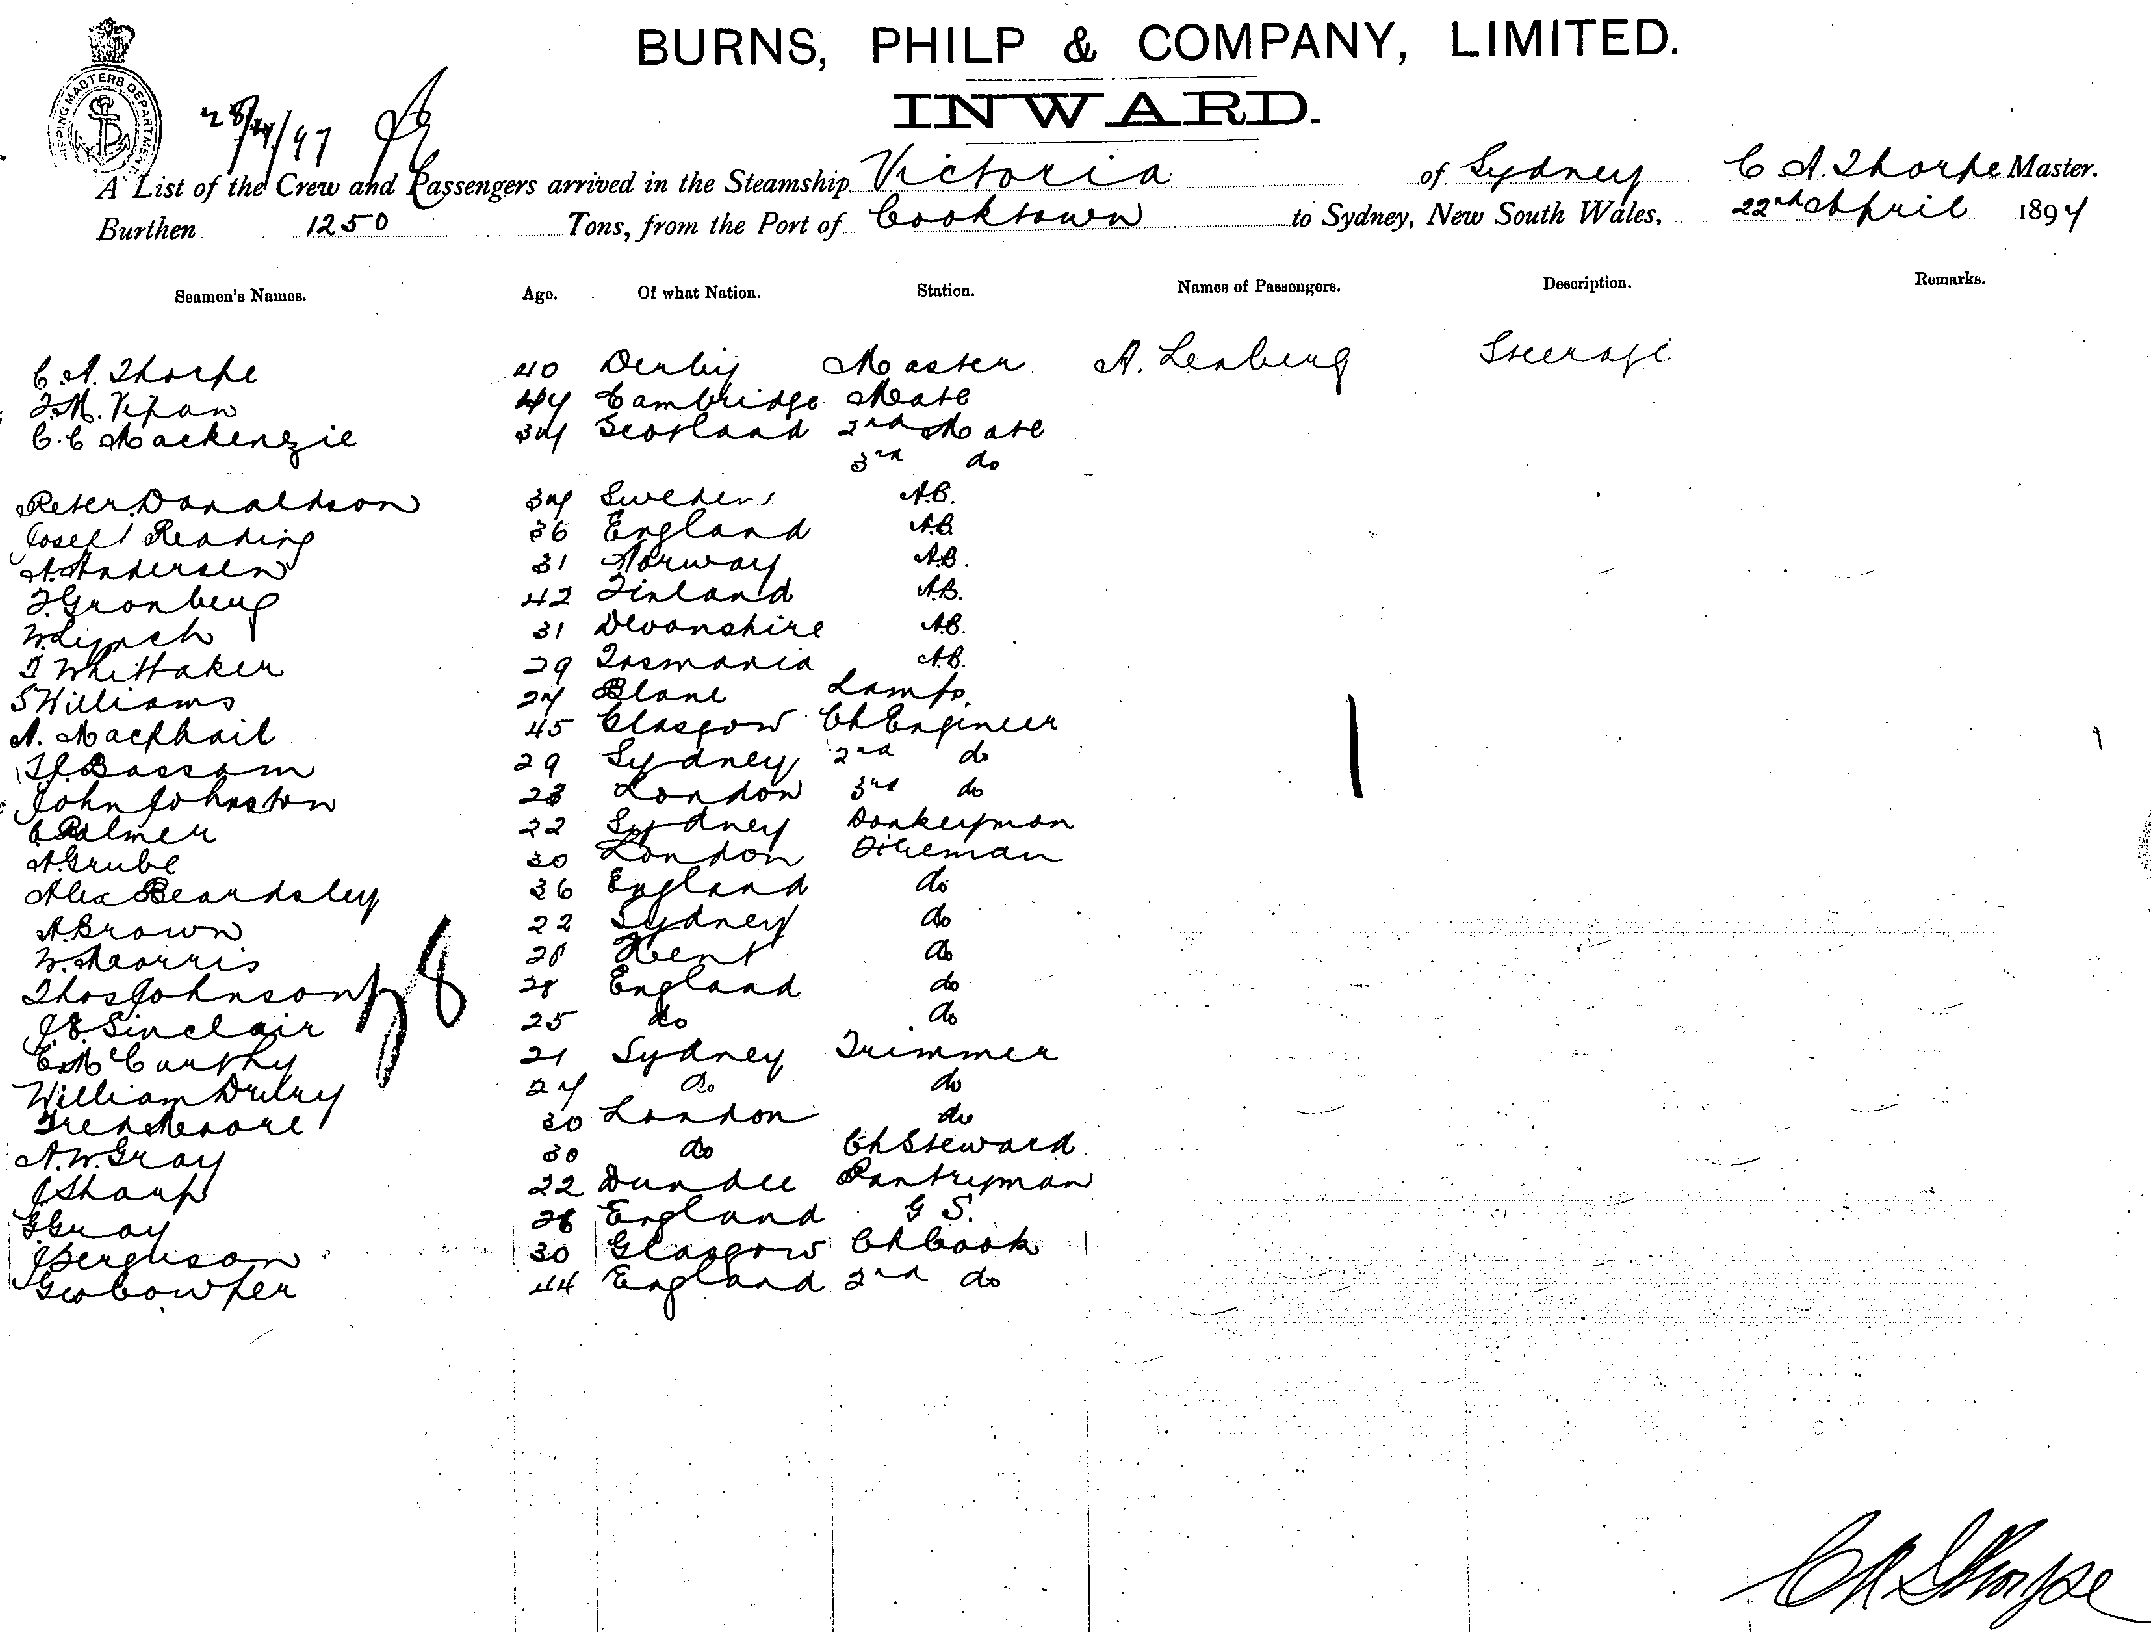 BURNS, PHILP & COMPANY, LIMITED.
INWARD.
28/4/97
A List of the Crew and Passengers arrived in the Steamship Victoria of Sydney C A. Thorpe Master.
Burthen 1250 Tons, from the Port of Cooktown to Sydney, New South Wales, 22nd April 1897
Seamen's Names. Age. Of what Nation. Station. Names of Passengers. Description. Remarks.
C. A. Thorpe 40 Derby Master A. Lenberg Steerage
J. M. 44 Cambridge Mate
C. C Mackenzie 34 Scotland 2nd Mate
3rd do
Peter Donaldson 34 Sweden A.B.
Josef Reading 36 England A.B.
A. Andersen 31 Norway A.B.
F. Gronberg 42 Finland A.B.
W. Lynch 31 Devonshire A.B.
T Whittaker 29 Tasmania A.B.
S Williams 27 Lamps.
A. Macphail 45 Glasgow Ch Engineer
Bassam 29 Sydney 2nd do
John Johnston 23 London 3rd do
C Palmer 22 Sydney Donkeyman
A. Grube 30 London Fireman
Alex Beardsley 36 England do
A. Brown 22 Sydney do
W. Morris 28 Kent do
Thos Johnson 28 England do
J. E. Sinclair 25 do do
E. McCarthy 21 Sydney Trimmer
William Drury 24 do do
Fred 30 London do
A. W. Gray 30 do Ch Steward
J Sharp 22 Dundee Pantryman
G. Gray 28 England G S.
J Ferguson 30 Glasgow Ch Cook
Geo Cowper 44 England 2nd do
28
1
C A Thorpe